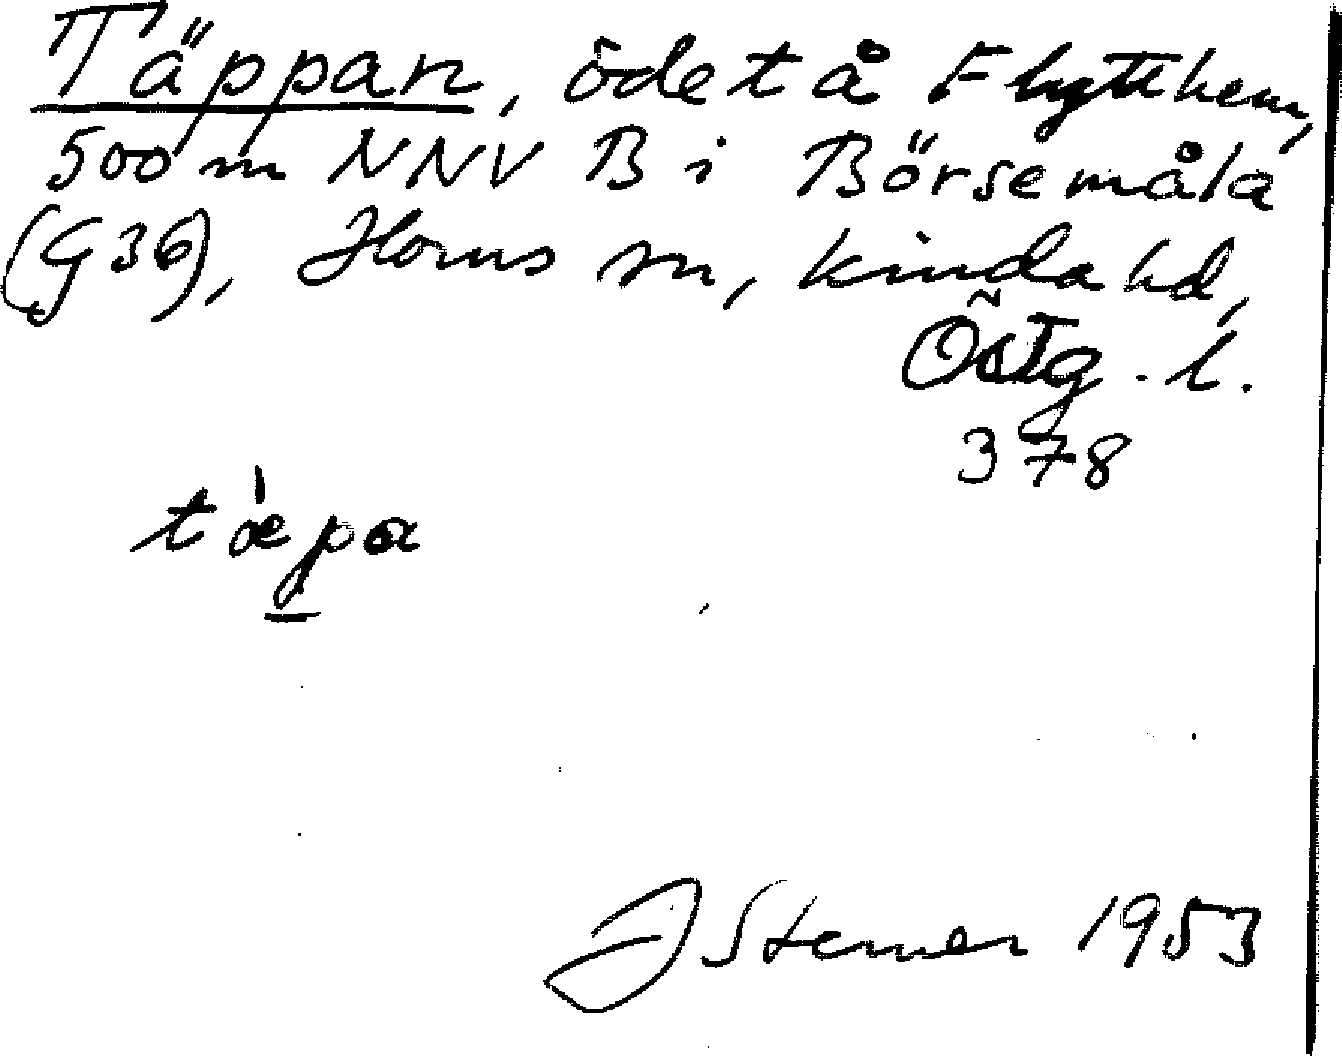 Täppan, ödet å Flytthem,
500 m NNV B i Börsemåla
(G36), Horns sn, Kinda hd,
Östg. l.
378
tæ̀pa
J Sterner 1953